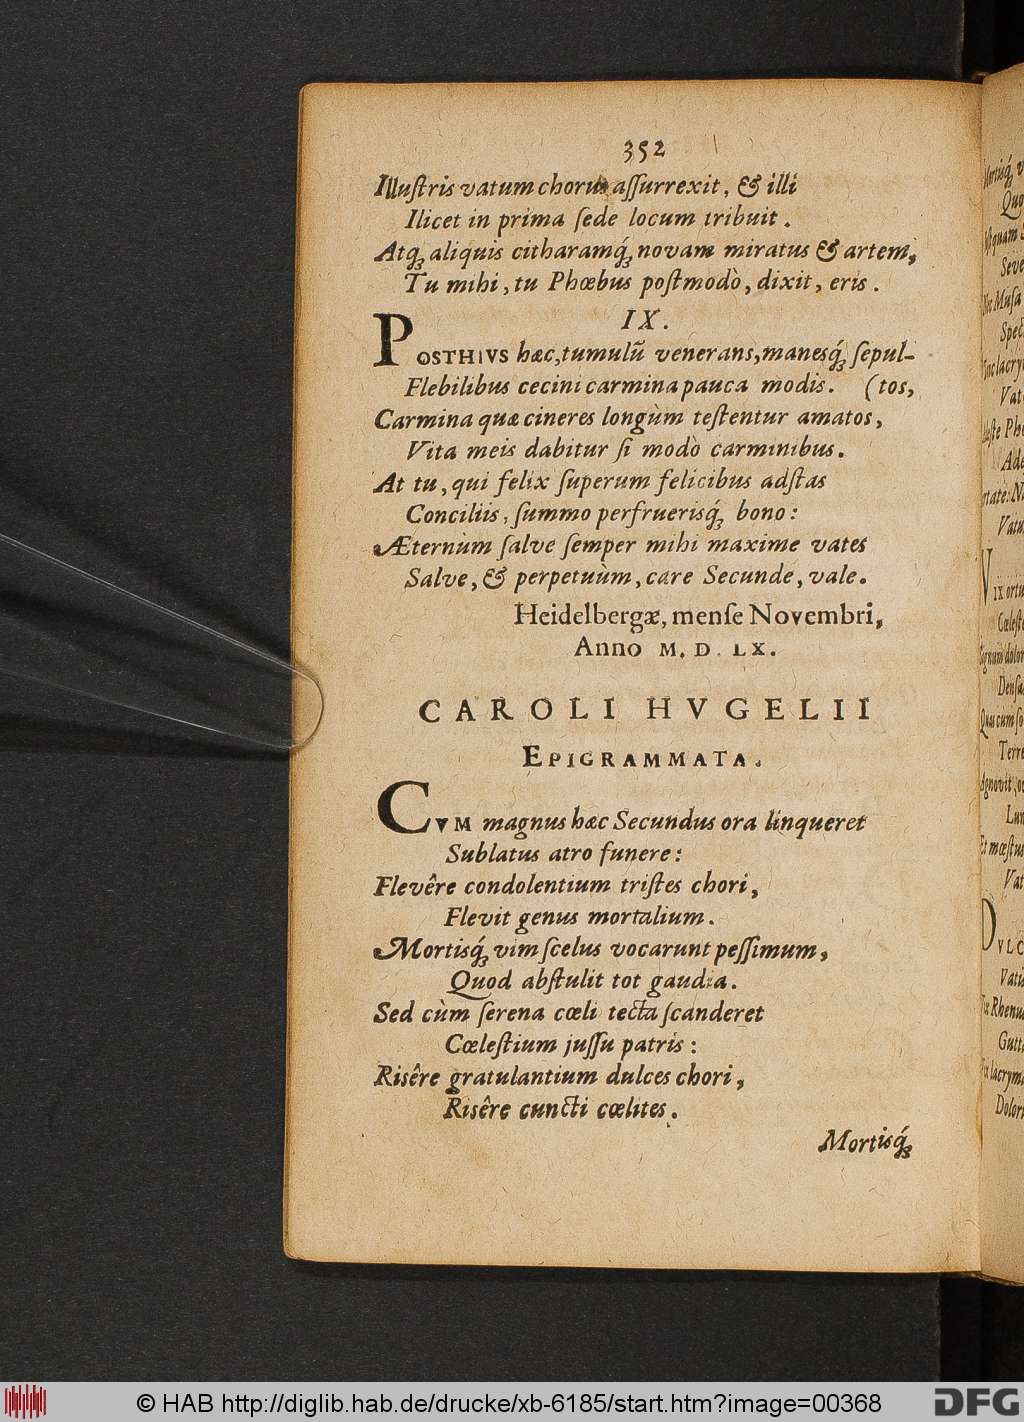 352
Illuſtris vatum chorus aſſurrexit, & illi
Ilicet in prima ſede locum tribuit.
Atq́; aliquis citharamq́; novam miratus & artem,
Tu mihi, tu Phœbus poſtmodò, dixit, eris.
IX.
POSTHIVS hæc, tumulū venerans, manesq́; ſepul-
Flebilibus cecini carmina pauca modis. (tos,
Carmina quæ cineres longùm teſtentur amatos,
Vita meis dabitur ſi modò carminibus.
At tu, qui felix ſuperum felicibus adſtas
Conciliis, ſummo perfruerisq́; bono:
Æternùm ſalve ſemper mihi maxime vates
Salve, & perpetuùm, care Secunde, vale.
Heidelbergæ, menſe Novembri,
Anno M. D. LX.
CAROLI HVGELII
EPIGRAMMATA.
CVM magnus hæc Secundus ora linqueret
Sublatus atro funere:
Flevêre condolentium triſtes chori,
Flevit genus mortalium.
Mortisq́; vim ſcelus vocarunt peſſimum,
Quod abſtulit tot gaudia.
Sed cùm ſerena cœli tecta ſcanderet
Cœleſtium juſſu patris:
Risêre gratulantium dulces chori,
Risêre cuncti cœlites.
Mortisq́;
© HAB http://diglib.hab.de/drucke/xb-6185/start.htm?image=00368
DFG